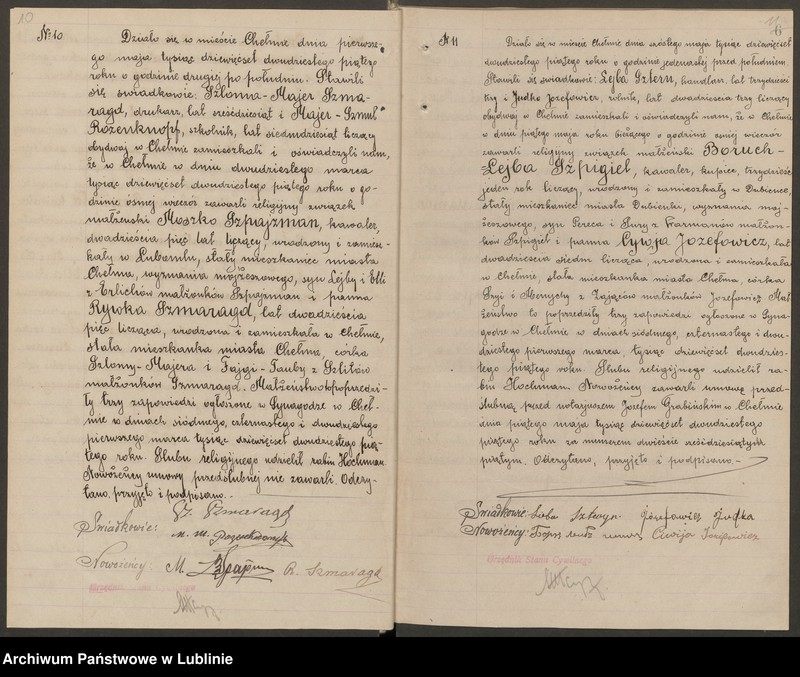 10
№ 10
Działo się w mieście Chełmie dnia pierwsze-
go maja tysiąc dziewięćset dwudziestego piątego
roku o godzinie drugiej po południu. Stawili
się świadkowie: Szloma-Majer Szma-
ragd, drukarz, lat sześćdziesiąt i Majer-Szmul
Rozenknopf, szkolnik, lat siedmdziesiąt liczący
obydwaj w Chełmie zamieszkali i oświadczyli nam,
że w Chełmie w dniu dwudziestego marca
tysiąc dziewięćset dwudziestego piątego roku o go-
dzinie ósmej wieczór zawarli religijny związek
małżeński Moszko Szpajzman, kawaler,
dwadzieścia pięć lat liczący, urodzony i zamiesz-
kały w Lubomlu, stały mieszkaniec miasta
Chełma, wyznania mojżeszowego, syn Lejby i Etli
z Erlichów małżonków Szpajzman i panna
Rywka Szmaragd, lat dwadzieścia
pięć licząca, urodzona i zamieszkała w Chełmie,
stała mieszkanka miasta Chełma, córka
Szlomy-Majera i Fajgi-Tauby z Sztilów
małżonków Szmaragd. Małżeństwo to poprzedzi-
ły trzy zapowiedzi ogłoszone w Synagodze w Cheł-
mie w dniach siódmego, czternastego i dwudziestego
pierwszego marca tysiąc dziewięćset dwudziestego pią-
tego roku. Ślubu religijnego udzielił rabin Hochman.
Nowożeńcy umowy przedślubnej nie zawarli. Odczy-
tano, przyjęto i podpisano.-
Świadkowie: Sz. Szmaragd
Nowożeńcy: M. R. Szmaragd
11
№ 11
Działo się w mieście Chełmie dnia szóstego maja tysiąc dziewięćset
dwudziestego piątego roku o godzinie jedenastej przed południem.
Stawili się świadkowie: Lejba Sztern, handlarz, lat trzydzieści
trzy i Judko Jozefowicz, rolnik, lat dwadzieścia trzy liczący
obydwaj w Chełmie zamieszkali i oświadczyli nam, że w Chełmie
w dniu piątego maja roku bieżącego o godzinie ósmej wieczór
zawarli religijny związek małżeński Boruch-
Lejba Szpigiel, kawaler, kupiec, trzydzieści
jeden rok liczący, urodzony i zamieszkały w Dubience,
stały mieszkaniec miasta Dubienki, wyznania moj-
żeszowego, syn Pereca i Sury z Warmanów małżon-
ków Szpigiel i panna Cywja Jozefowicz, lat
dwadzieścia siedm licząca, urodzona i zamieszkała
w Chełmie, stała mieszkanka miasta Chełma, córka
Szyi i z Zająców małżonków Jozefowicz. Mał-
żeństwo to poprzedziły trzy zapowiedzi ogłoszone w Syna-
godze w Chełmie w dniach siódmego, czternastego i dwu-
dziestego pierwszego marca, tysiąc dziewięćset dwudzies-
tego piątego roku. Ślubu religijnego udzielił ra-
bin Hochman. Nowożeńcy zawarli umowę przed-
ślubną przed notarjuszem Józefem Grabińskim w Chełmie
dnia piątego maja tysiąc dziewięćset dwudziestego
piątego roku za numerem dwieście sześćdziesiątym
piątym. Odczytano, przyjęto i podpisano.-
Świadkowie: Józefowicz Judka
Nowożeńcy: Cywja
Urzędnik Stanu Cywilnego
Archiwum Państwowe w Lublinie